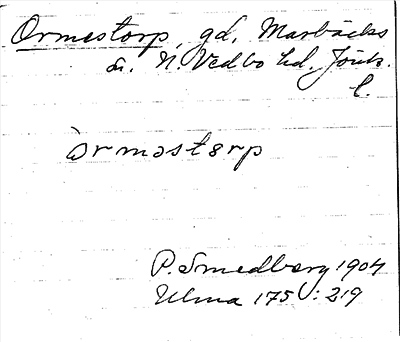 Ormestorp, gd, Marbäcks
sn. N. Vedbo hd. Jönk.
l.
òrməstərp
P. Smedberg 1904
Ulma 175 : 219